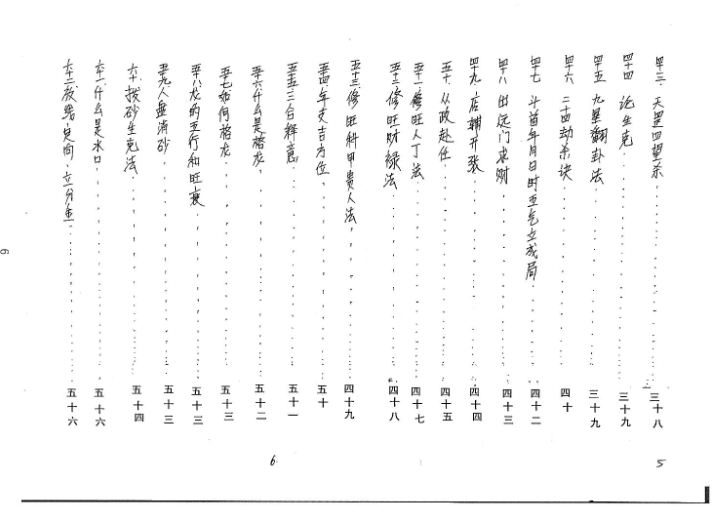 四三、天罡四望杀……三十八
四四、论生克……三十九
四五、九星翻卦法……三十九
四六、二十四劫杀诀……四十
四七、斗首年月日时五气立成局……四十二
四八、出远门求财……四十三
四九、店铺开张……四十四
五十、从政赴任……四十五
五一、修旺人丁法……四十七
五二、修旺财禄法……四十八
五三、修旺科甲贵人法……四十九
五四、年支吉方位……五十
五五、三合释意……五十一
五六、什么是格龙……五十二
五七、如何格龙……五十三
五八、龙的五行和旺衰……五十三
五九、人盘消砂……五十三
六十、拨砂生克法……五十四
六一、什么是水口……五十六
六二、放线定向、立分金……五十六
5
6
6